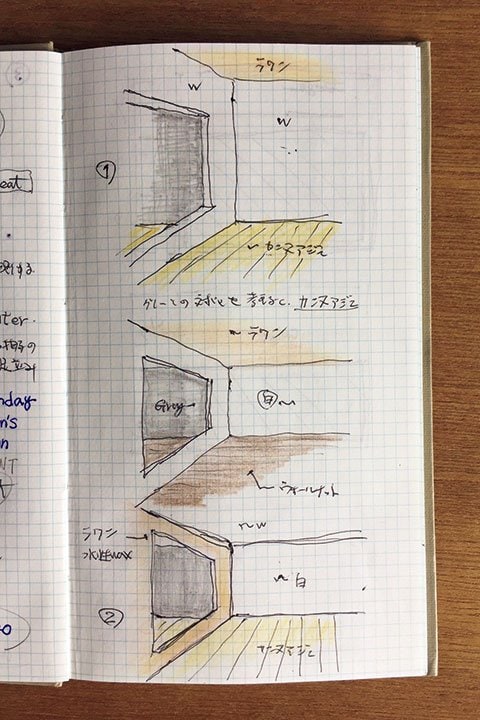 eat
ラワン
W
W
①
～カンヌアジェ
グレーとの対比を考えると、カンヌアジェ
～ラワン
Grey
白～
ウォールナット
する
nter.
nday
n's
n
NT
ラワン
水性wax
～W
～白
②
カンヌアジェ